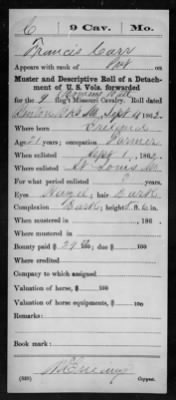 C | 9 Cav. | Mo.
Francis Carr
Appears with rank of Pvt
Muster and Descriptive Roll of a Detach-
ment of U. S. Vols. forwarded
for the 9 Reg't Missouri Cavalry. Roll dated
Benton Bks Mo Sept 4, 1862.
Where born
Age 21 years; occupation Farmer
When enlisted Sept 1, 1862.
Where enlisted St Louis Mo
For what period enlisted years.
Eyes Hazel; hair Dark
Complexion Dark; height 5 ft. 6 in.
When mustered in , 186 .
Where mustered in
Bounty paid $ 29 100; due $ 100
Where credited
Company to which assigned
Valuation of horse, $ 100
Valuation of horse equipments, $ 100
Remarks:
Book mark:
(339) Copyist.